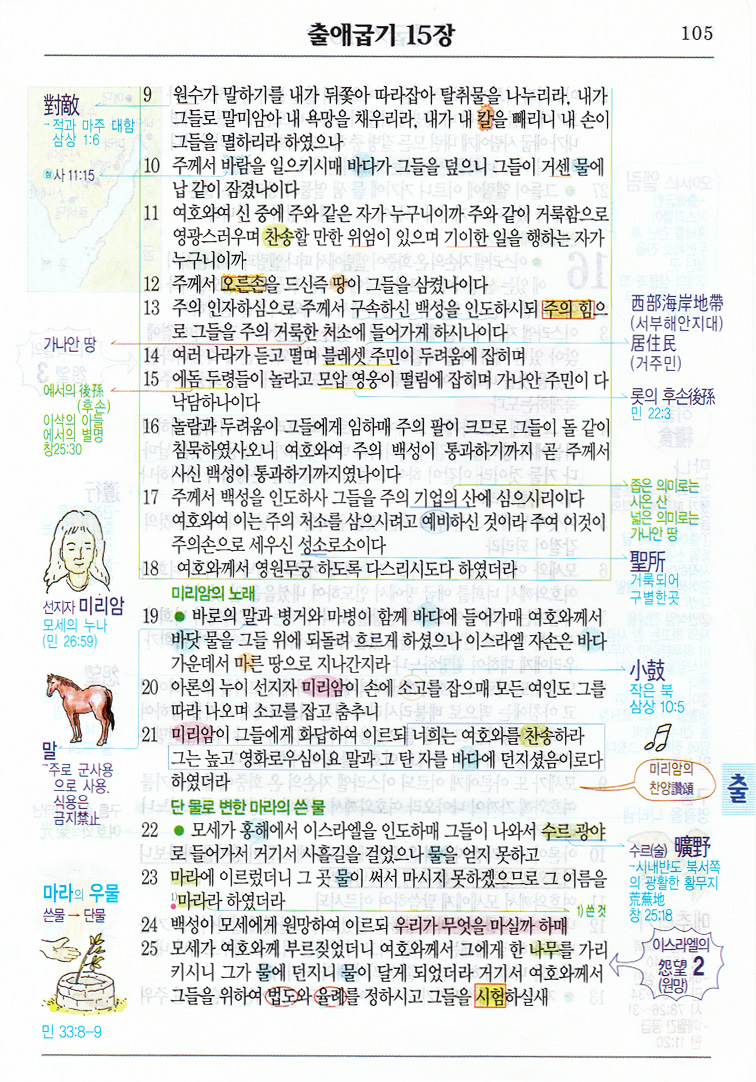 출애굽기 15장
105
9 원수가 말하기를 내가 뒤쫓아 따라잡아 탈취물을 나누리라, 내가
그들로 말미암아 내 욕망을 채우리라, 내가 내 칼을 빼리니 내 손이
그들을 멸하리라 하였으나
10 주께서 바람을 일으키시매 바다가 그들을 덮으니 그들이 거센 물에
납 같이 잠겼나이다
11 여호와여 신 중에 주와 같은 자가 누구니이까 주와 같이 거룩함으로
영광스러우며 찬송할 만한 위엄이 있으며 기이한 일을 행하는 자가
누구니이까
12 주께서 오른손을 드신즉 땅이 그들을 삼켰나이다
13 주의 인자하심으로 주께서 구속하신 백성을 인도하시되 주의 힘으
로 그들을 주의 거룩한 처소에 들어가게 하시나이다
14 여러 나라가 듣고 떨며 블레셋 주민이 두려움에 잡히며
15 에돔 두령들이 놀라고 모압 영웅이 떨림에 잡히며 가나안 주민이 다
낙담하나이다
16 놀람과 두려움이 그들에게 임하매 주의 팔이 크므로 그들이 돌 같이
침묵하였사오니 여호와여 주의 백성이 통과하기까지 곧 주께서
사신 백성이 통과하기까지였나이다
17 주께서 백성을 인도하사 그들을 주의 기업의 산에 심으시리이다
여호와여 이는 주의 처소를 삼으시려고 예비하신 것이라 주여 이것이
주의손으로 세우신 성소로소이다
18 여호와께서 영원무궁 하도록 다스리시도다 하였더라
미리암의 노래
19 ● 바로의 말과 병거와 마병이 함께 바다에 들어가매 여호와께서
바닷 물을 그들 위에 되돌려 흐르게 하셨으나 이스라엘 자손은 바다
가운데서 마른 땅으로 지나간지라
20 아론의 누이 선지자 미리암이 손에 소고를 잡으매 모든 여인도 그를
따라 나오며 소고를 잡고 춤추니
21 미리암이 그들에게 화답하여 이르되 너희는 여호와를 찬송하라
그는 높고 영화로우심이요 말과 그 탄 자를 바다에 던지셨음이로다
하였더라
단 물로 변한 마라의 쓴 물
22 ● 모세가 홍해에서 이스라엘을 인도하매 그들이 나와서 수르 광야
로 들어가서 거기서 사흘길을 걸었으나 물을 얻지 못하고
23 마라에 이르렀더니 그 곳 물이 써서 마시지 못하겠으므로 그 이름을
1)마라라 하였더라
1) 쓴 것
24 백성이 모세에게 원망하여 이르되 우리가 무엇을 마실까 하매
25 모세가 여호와께 부르짖었더니 여호와께서 그에게 한 나무를 가리
키시니 그가 물에 던지니 물이 달게 되었더라 거기서 여호와께서
그들을 위하여 법도와 율례를 정하시고 그들을 시험하실새
對敵
→적과 마주 대함
삼상 1:6
사 11:15
가나안 땅
에서의 後孫
(후손)
이삭의 아들
에서의 별명
창25:30
선지자 미리암
모세의 누나
(민 26:59)
말
→주로 군사용
으로 사용.
식용은
금지禁止
마라의 우물
쓴물 → 단물
민 33:8-9
西部海岸地帶
(서부해안지대)
居住民
(거주민)
롯의 후손後孫
민 22:3
좁은 의미로는
시온 산
넓은 의미로는
가나안 땅
聖所
거룩되어
구별한곳
小鼓
작은 북
삼상 10:5
미리암의
찬양讚頌
출
수르(술) 曠野
→시내반도 북서쪽
의 광활한 황무지
荒蕪地
창 25:18
이스라엘의
怨望 2
(원망)